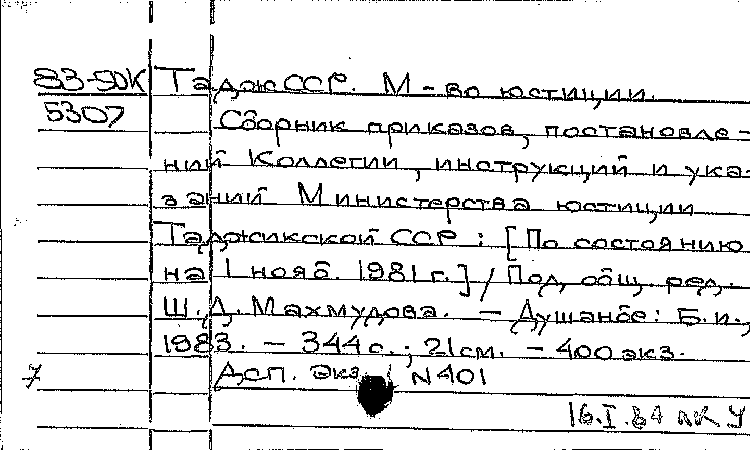 83-5ДК ТаджССР. М-во юстиции.
5307 Сборник приказов, постановле-
ний Коллегии, инструкций и ука-
заний Министерства юстиции
Таджикской ССР: [По состоянию
на 1 нояб. 1981 г.] / Под общ. ред.
Ш.Д. Махмудова. - Душанбе: Б.и.,
1983. - 344 с.; 21 см. - 400 экз.
7 Дсп. Экз. N 401
16.I.84